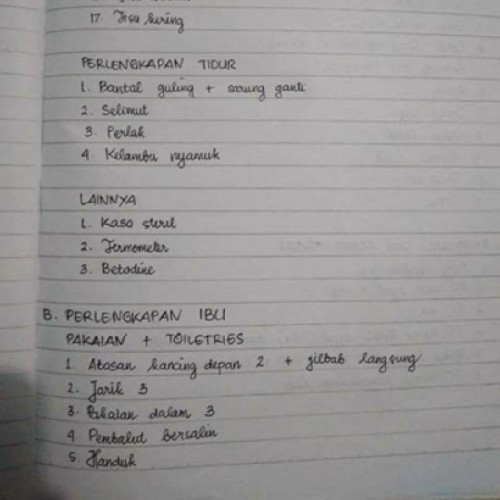 17. Tisu kering
PERLENGKAPAN TIDUR
1. Bantal guling + sarung ganti
2. Selimut
3. Perlak
4. Kelambu nyamuk
LAINNYA
1. Kasa steril
2. Termometer
3. Betadine
B. PERLENGKAPAN IBU
PAKAIAN + TOILETRIES
1. Atasan kancing depan 2 + jilbab langsung
2. Jarik 3
3. Pakaian dalam 3
4. Pembalut Bersalin
5. Handuk